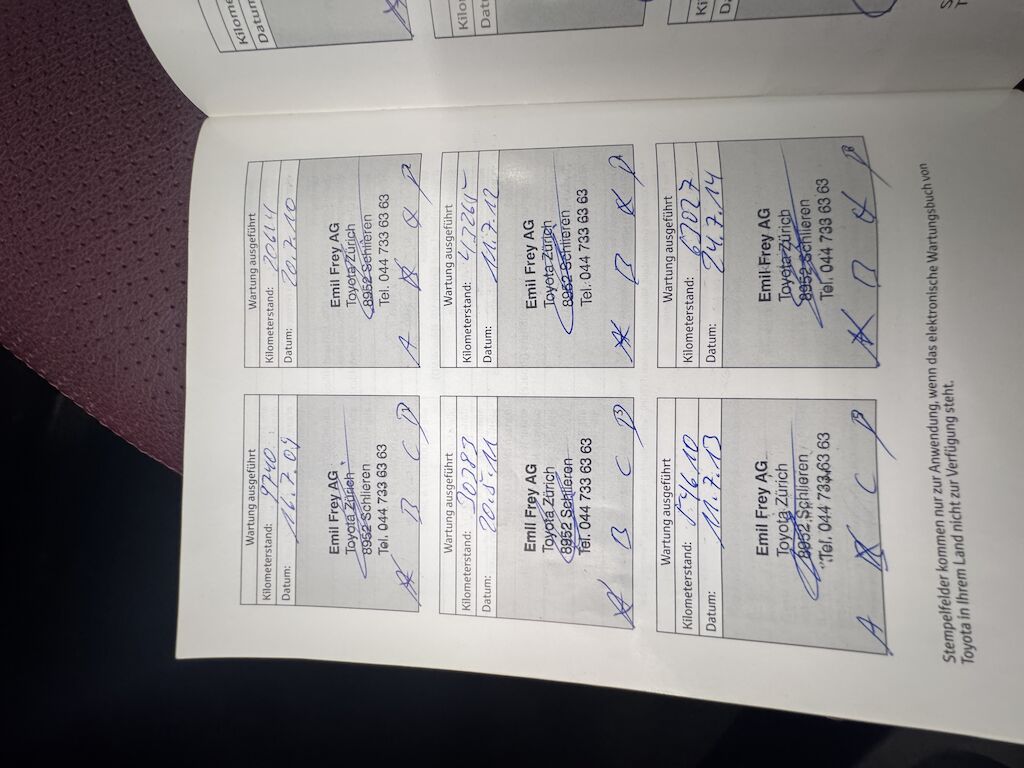 Wartung ausgeführt
Kilometerstand: 9740
Datum: 16.7.09
Emil Frey AG
Toyota Zürich
8952 Schlieren
Tel. 044 733 63 63
A B C D
Wartung ausgeführt
Kilometerstand: 20614
Datum: 20.7.10
Emil Frey AG
Toyota Zürich
8952 Schlieren
Tel. 044 733 63 63
A B C D
Wartung ausgeführt
Kilometerstand: 30783
Datum: 20.5.11
Emil Frey AG
Toyota Zürich
8952 Schlieren
Tel. 044 733 63 63
A B C D
Wartung ausgeführt
Kilometerstand:
Datum: 11.7.12
Emil Frey AG
Toyota Zürich
8952 Schlieren
Tel. 044 733 63 63
A B C D
Wartung ausgeführt
Kilometerstand: 54610
Datum: 11.7.13
Emil Frey AG
Toyota Zürich
8952 Schlieren
Tel. 044 733 63 63
A B C D
Wartung ausgeführt
Kilometerstand: 67027
Datum: 24.7.14
Emil Frey AG
Toyota Zürich
8952 Schlieren
Tel. 044 733 63 63
A B C D
Stempelfelder kommen nur zur Anwendung, wenn das elektronische Wartungsbuch von
Toyota in Ihrem Land nicht zur Verfügung steht.
Kilome
Datum